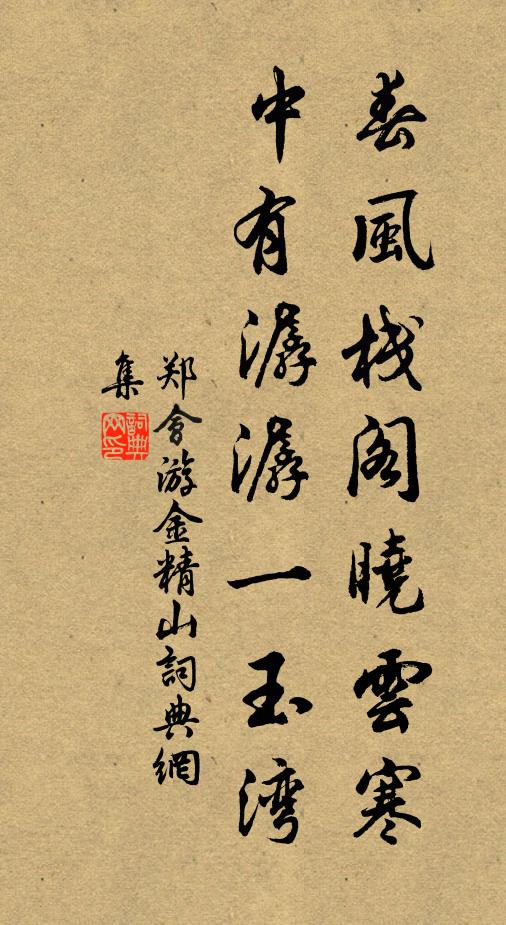 春風栈阁曉雲寒
中有潺潺一玉湾
郑會游金精山詞典網
集
詞典網印